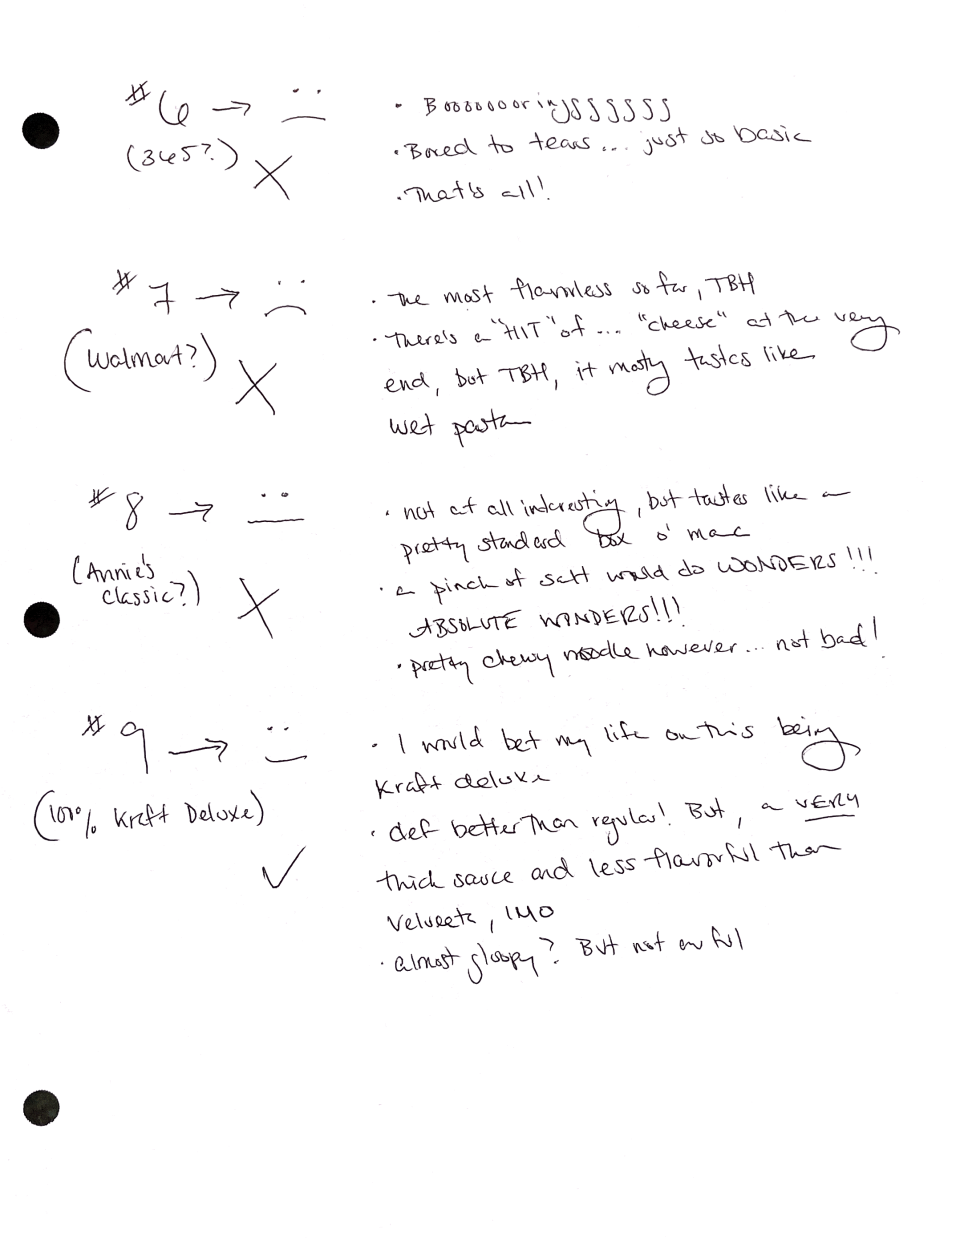 #6 →
(365?)
• Boooooooringggggggg
• Bored to tears... just so basic
• That's all!
#7 →
(Walmart?)
• The most flavorless so far, TBH
• There's a "HIT" of ... "cheese" at the very
end, but TBH, it mosty tastes like
wet pasta
#8 →
(Annie's
classic?)
• not at all interesting, but tastes like a
pretty standard box o' mac
• a pinch of salt would do WONDERS!!!
ABSOLUTE WONDERS!!!
• pretty chewy noodle however... not bad!
#9 →
(100% Kraft Deluxe)
• I would bet my life on this being
Kraft deluxe
• def better than regular! But, a VERY
thick sauce and less flavorful than
Velveeta, IMO
• almost gloopy? But not awful